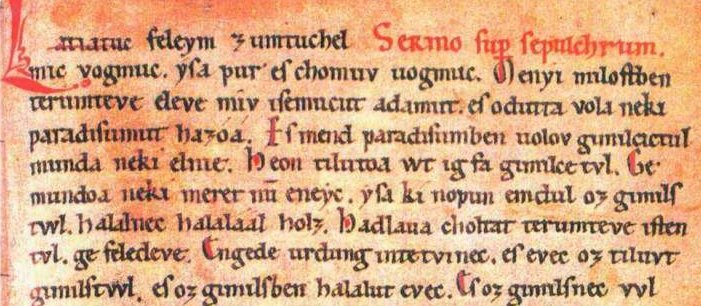 Latiatuc feleym zumtuchel Sermo sup sepulchrum.
mic vogmuc. ysa pur es chomuv uogmuc. Menyi milostben
terumteve eleve miv isemucut adamut. es odutta vola neki
paradisumut hazoa. Es mend paradisumben uolov gimilcictul
munda neki elnie. Heon tilutoa wt ig fa gimilce tvl. Ge
mundoa neki meret nū eneyc. ysa ki nopun emdul oz gimils
twl. halalnec halalaal holz. Hadlaua choltat terumteve isten
tvl. ge feledeve. Engede urdung intetvinec. es evec oz tiluvt
gimilstvvl. es oz gimilsben halalut evec. Es oz gimilsnec vvl